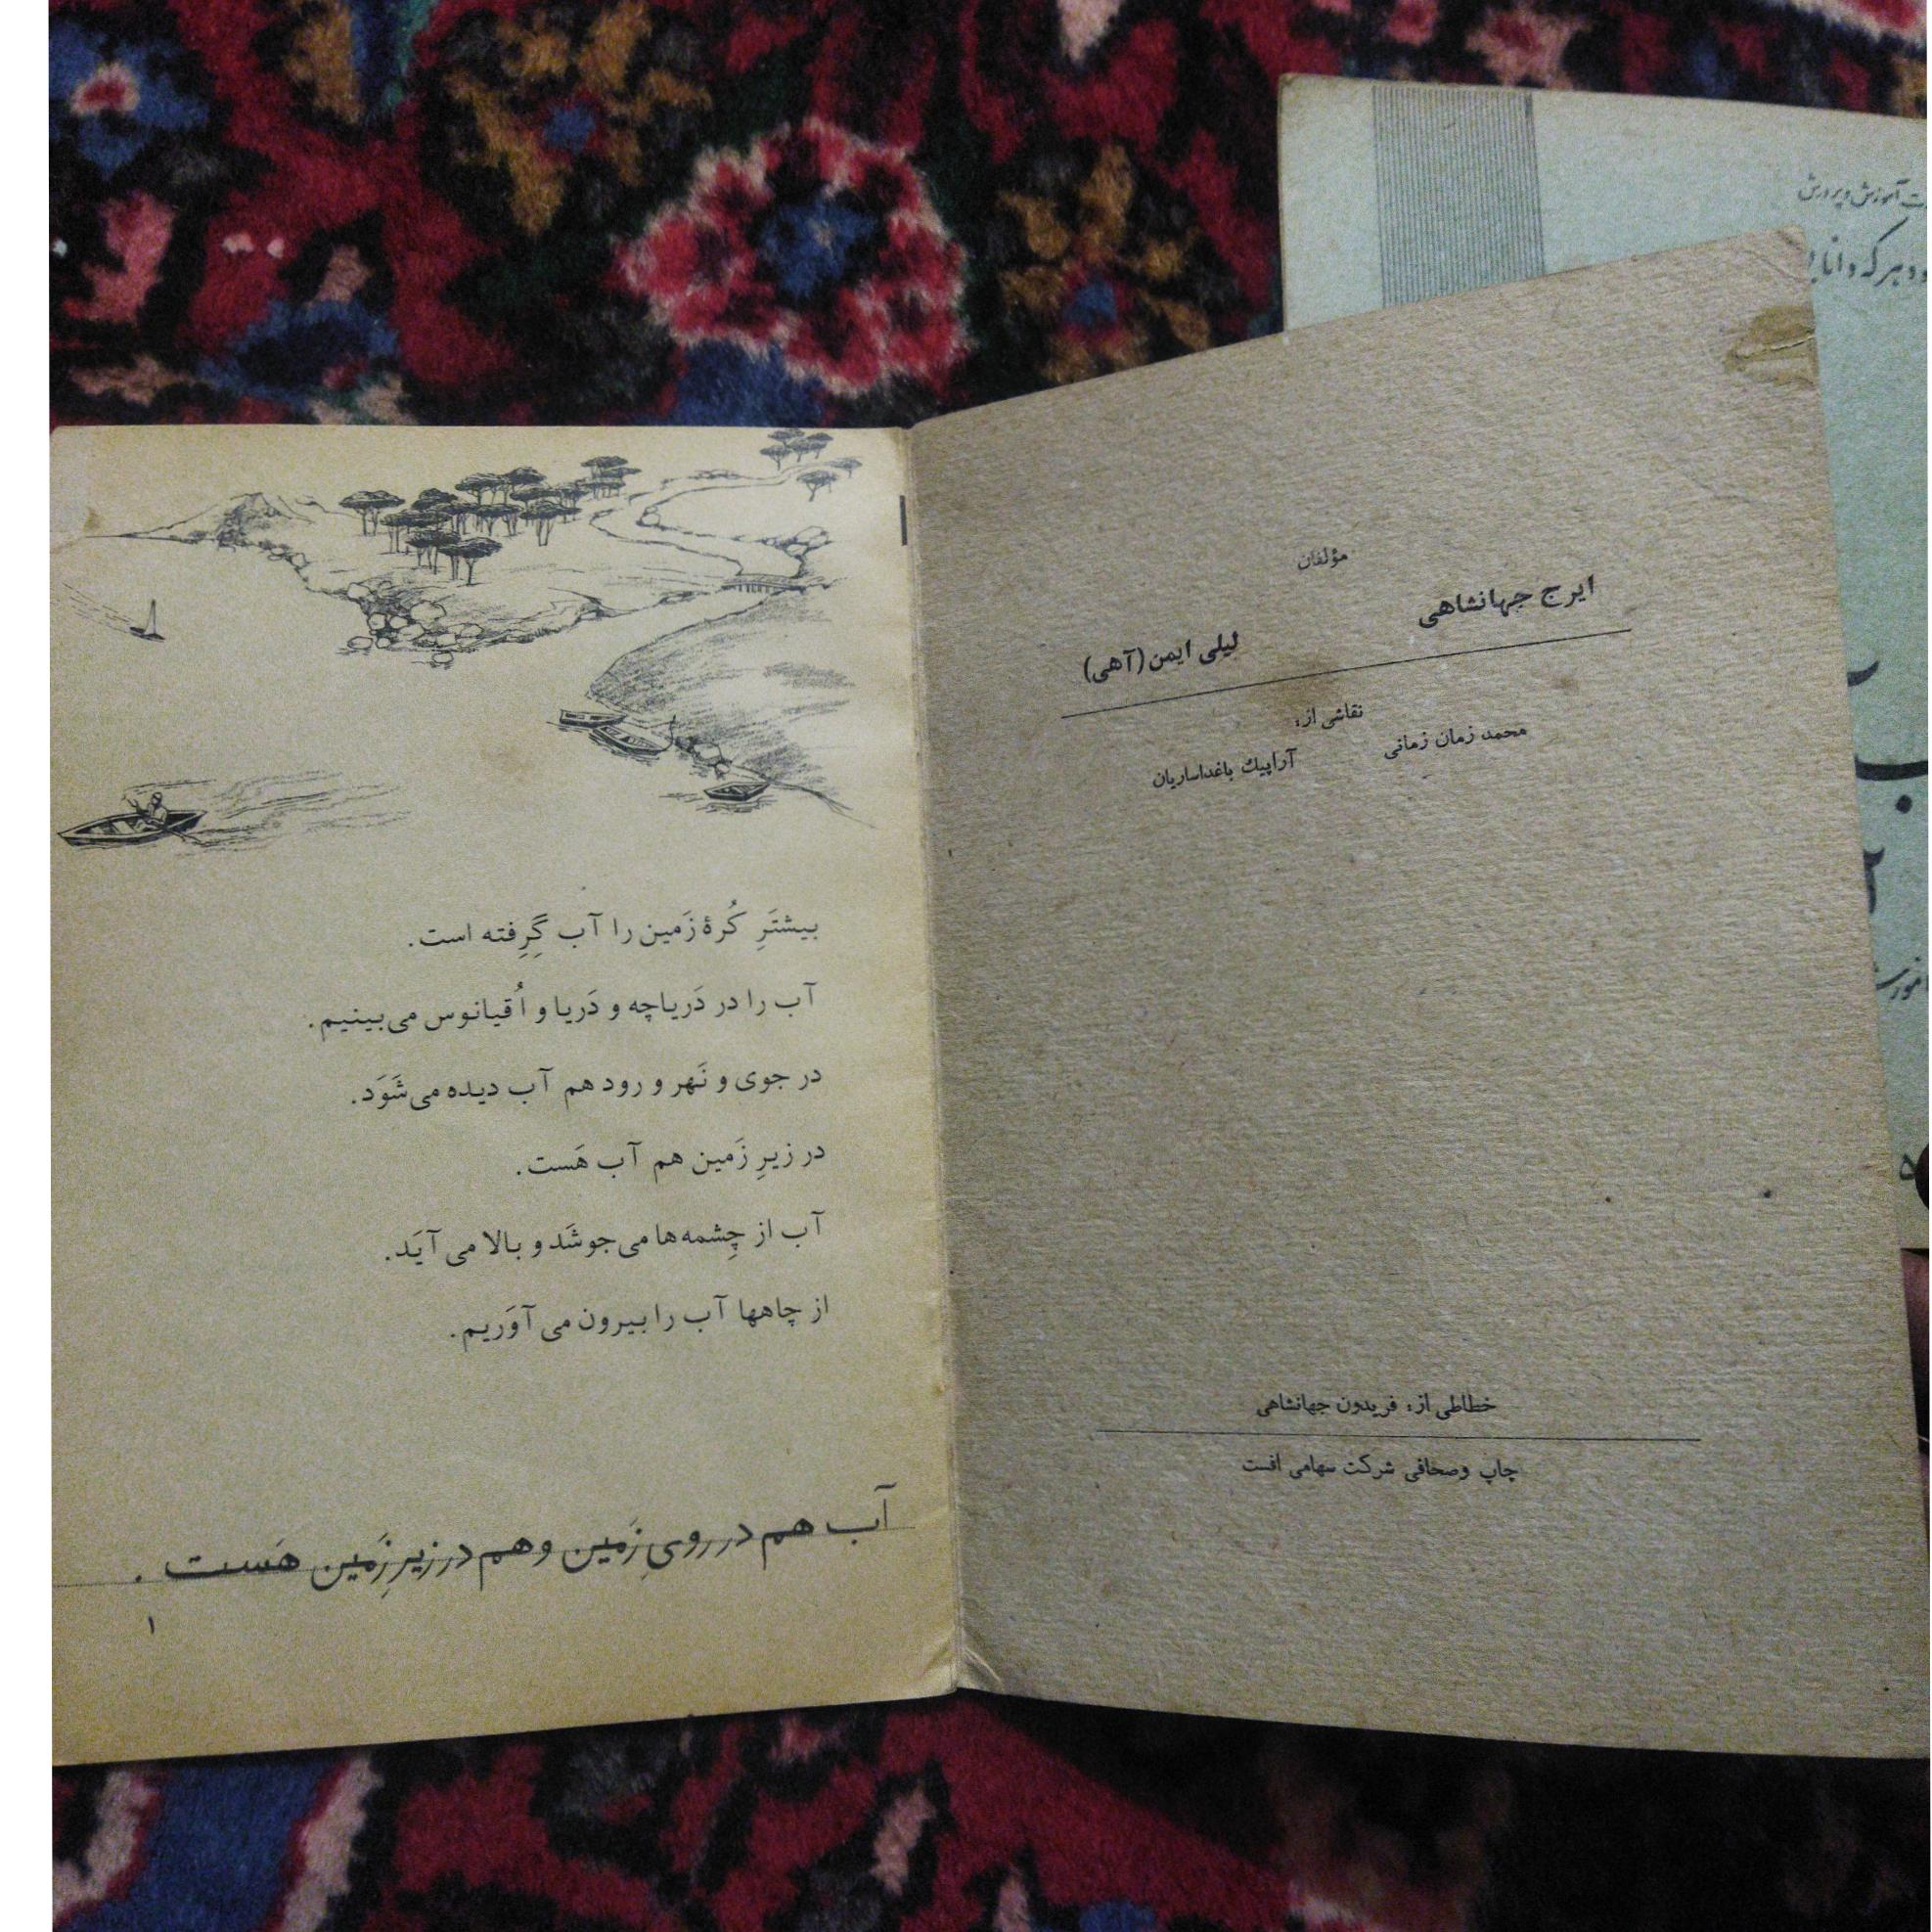 مؤلفان
ایرج جهانشاهی
لیلی ایمن (آهی)
نقاشی از:
محمد زمان زمانی
آراپیك باغداساریان
خطاطی از: فریدون جهانشاهی
چاپ وصحافی شرکت سهامی افست
بیشتَرِ کُرهٔ زَمین را آب گِرِفته است.
آب را در دَریاچه و دَریا و اُقیانوس می‌بینیم.
در جوی و نَهر و رود هم آب دیده می‌شَوَد.
در زیرِ زَمین هم آب هَست.
آب از چِشمه‌ها می‌جوشَد و بالا می‌آیَد.
از چاهها آب را بیرون می‌آوَریم.
آب هم در رویِ زَمین و هم در زیرِ زَمین هَست.
۱
آموزش و پرورش
هر که دانا